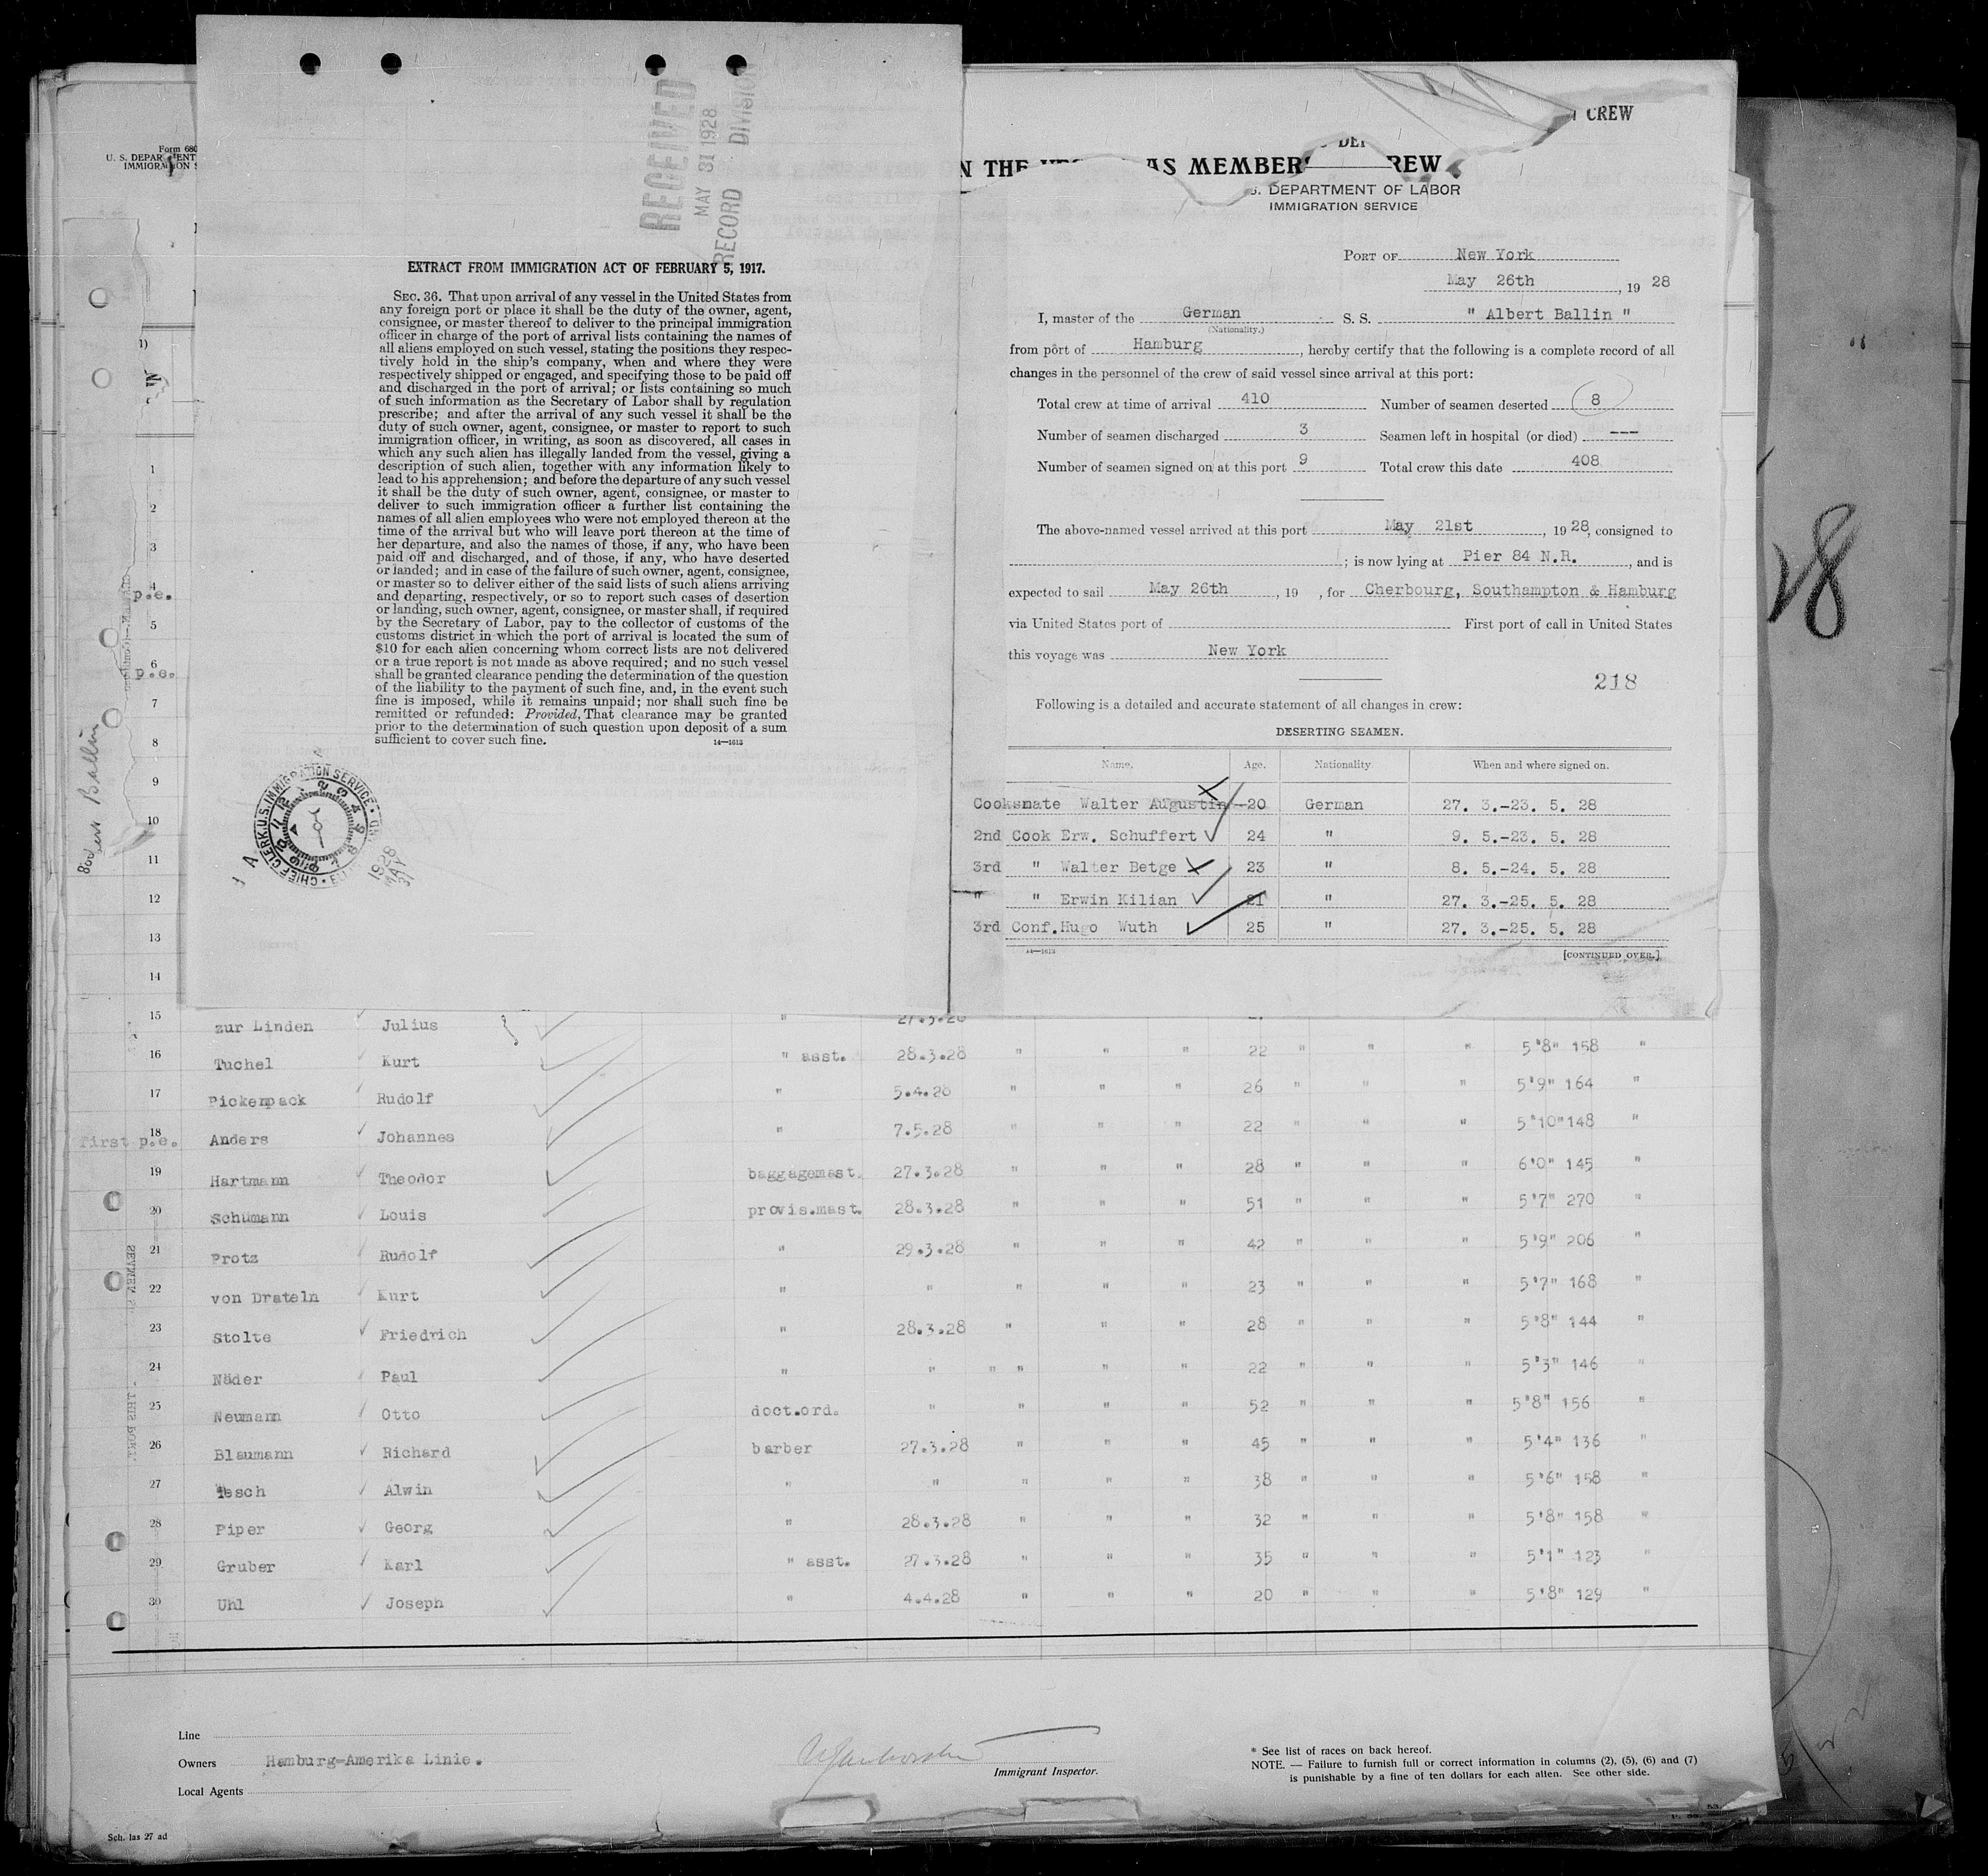 RECEIVED
MAY 31 1928
RECORD DIVISION
EXTRACT FROM IMMIGRATION ACT OF FEBRUARY 5, 1917.
SEC. 36. That upon arrival of any vessel in the United States from
any foreign port or place it shall be the duty of the owner, agent,
consignee, or master thereof to deliver to the principal immigration
officer in charge of the port of arrival lists containing the names of
all aliens employed on such vessel, stating the positions they respec-
tively hold in the ship's company, when and where they were
respectively shipped or engaged, and specifying those to be paid off
and discharged in the port of arrival; or lists containing so much
of such information as the Secretary of Labor shall by regulation
prescribe; and after the arrival of any such vessel it shall be the
duty of such owner, agent, consignee, or master to report to such
immigration officer, in writing, as soon as discovered, all cases in
which any such alien has illegally landed from the vessel, giving a
description of such alien, together with any information likely to
lead to his apprehension; and before the departure of any such vessel
it shall be the duty of such owner, agent, consignee, or master to
deliver to such immigration officer a further list containing the
names of all alien employees who were not employed thereon at the
time of the arrival but who will leave port thereon at the time of
her departure, and also the names of those, if any, who have been
paid off and discharged, and of those, if any, who have deserted
or landed; and in case of the failure of such owner, agent, consignee,
or master so to deliver either of the said lists of such aliens arriving
and departing, respectively, or so to report such cases of desertion
or landing, such owner, agent, consignee, or master shall, if required
by the Secretary of Labor, pay to the collector of customs of the
customs district in which the port of arrival is located the sum of
$10 for each alien concerning whom correct lists are not delivered
or a true report is not made as above required; and no such vessel
shall be granted clearance pending the determination of the question
of the liability to the payment of such fine, and, in the event such
fine is imposed, while it remains unpaid; nor shall such fine be
remitted or refunded: Provided, That clearance may be granted
prior to the determination of such question upon deposit of a sum
sufficient to cover such fine.
14—1613
CHIEF CLERK U.S. IMMIGRATION SERVICE
1928 MAY 31
Form 680
U. S. DEPARTMENT
IMMIGRATION S
CREW
N THE AS MEMBERS CREW
S. DEPARTMENT OF LABOR
IMMIGRATION SERVICE
PORT OF New York
May 26th, 19 28
I, master of the German S. S. " Albert Ballin "
(Nationality.)
from port of Hamburg, hereby certify that the following is a complete record of all
changes in the personnel of the crew of said vessel since arrival at this port:
Total crew at time of arrival 410 Number of seamen deserted 8
Number of seamen discharged 3 Seamen left in hospital (or died) ---
Number of seamen signed on at this port 9 Total crew this date 408
The above-named vessel arrived at this port May 21st, 19 28, consigned to
; is now lying at Pier 84 N.R., and is
expected to sail May 26th, 19 , for Cherbourg, Southampton & Hamburg
via United States port of First port of call in United States
this voyage was New York
218
Following is a detailed and accurate statement of all changes in crew:
DESERTING SEAMEN.
Name. Age. Nationality When and where signed on.
Cooksmate Walter Augustin 20 German 27. 3.-23. 5. 28
2nd Cook Erw. Schuffert 24 " 9. 5.-23. 5. 28
3rd " Walter Betge 23 " 8. 5.-24. 5. 28
" " Erwin Kilian 21 " 27. 3.-25. 5. 28
3rd Conf. Hugo Wuth 25 " 27. 3.-25. 5. 28
14—1613 [CONTINUED OVER.]
28
1
2
3
4 p.e.
5
6 p.e.
7
8
9
10
11
12
13
14
15 zur Linden Julius " 27.3.28
16 Tuchel Kurt " asst. 28.3.28 " " " 22 " " " 5'8" 158 "
17 Pickenpack Rudolf " 5.4.28 " " " 26 " " " 5'9" 164 "
first p.e. 18 Anders Johannes " 7.5.28 " " " 22 " " " 5'10" 148 "
19 Hartmann Theodor baggagemast. 27.3.28 " " " 28 " " " 6'0" 145 "
20 Schümann Louis provis.mast. 28.3.28 " " " 51 " " " 5'7" 270 "
21 Protz Rudolf " 29.3.28 " " " 42 " " " 5'9" 206 "
22 von Drateln Kurt " " " " " 23 " " " 5'7" 168 "
23 Stolte Friedrich " 28.3.28 " " " 28 " " " 5'8" 144 "
24 Näder Paul " " " " " " 22 " " " 5'3" 146 "
25 Neumann Otto doct.ord. " " " " 52 " " " 5'8" 156 "
26 Blaumann Richard barber 27.3.28 " " " 45 " " " 5'4" 136 "
27 Tesch Alwin " " " " " 38 " " " 5'6" 158 "
28 Piper Georg " 28.3.28 " " " 32 " " " 5'8" 158 "
29 Gruber Karl " asst. 27.3.28 " " " 35 " " " 5'1" 123 "
30 Uhl Joseph " 4.4.28 " " " 20 " " " 5'8" 129 "
Line
Owners Hamburg-Amerika Linie.
Local Agents
Immigrant Inspector.
* See list of races on back hereof.
NOTE. — Failure to furnish full or correct information in columns (2), (5), (6) and (7)
is punishable by a fine of ten dollars for each alien. See other side.
Sch. las 27 ad